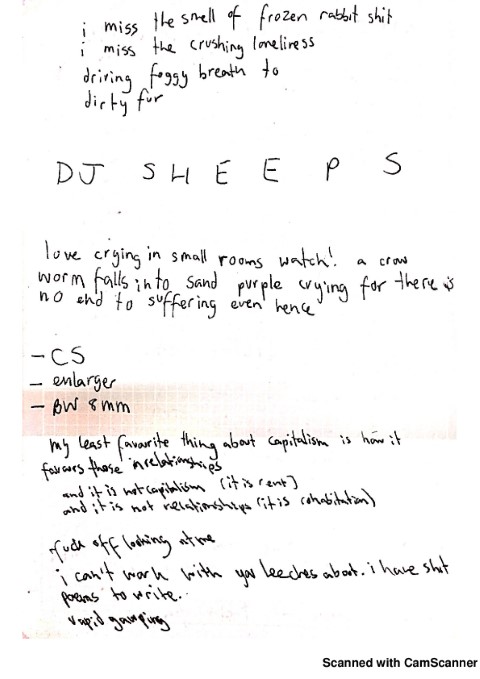 i miss the smell of frozen rabbit shit
i miss the crushing loneliness
driving foggy breath to
dirty fur
DJ SHEEPS
love crying in small rooms watch! a crow
worm falls into sand purple crying for there is
no end to suffering even hence
- CS
- enlarger
- BW 8mm
my least favourite thing about capitalism is how it
favours those in relationships
and it is not capitalism (it is rent)
and it is not relationships (it is cohabitation)
fuck off looking at me
i can't work with you leeches about. i have shit
poems to write.
vapid
Scanned with CamScanner